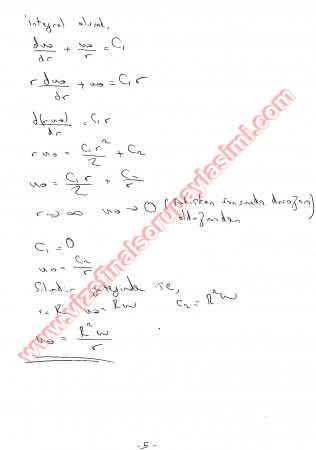 integral alırsak,
du_θ/dr + u_θ/r = C₁
r du_θ/dr + u_θ = C₁ r
d(r u_θ)/dr = C₁ r
r u_θ = C₁ r²/2 + C₂
u_θ = C₁ r/2 + C₂/r
r → ∞ u_θ → 0 (akışkan sonsuzda duracağı
olduğundan
C₁ = 0
u_θ = C₂/r
Silindir yüzeyinde ise,
r = R u_θ = Rw C₂ = R²w
u_θ = R²w/r
-5-
www.vizefinalsorupaylasimi.com